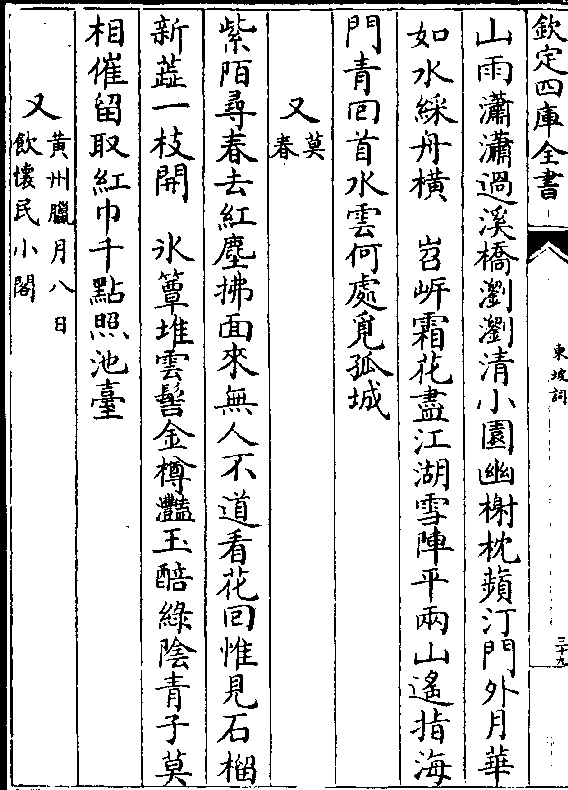 欽定四庫全書
東坡詞
三十九
山雨瀟瀟過溪橋瀏瀏清小園幽榭枕蘋汀門外月華
如水綵舟橫　岧岍霜花盡江湖雪陣平兩山遙指海
門青回首水雲何處覓孤城
又莫春
紫陌尋春去紅塵拂面來無人不道看花回惟見石榴
新蘂一枝開　氷簟堆雲髻金樽灧玉醅綠陰青子莫
相催留取紅巾千點照池臺
又黃州臘月八日
飲懷民小閣